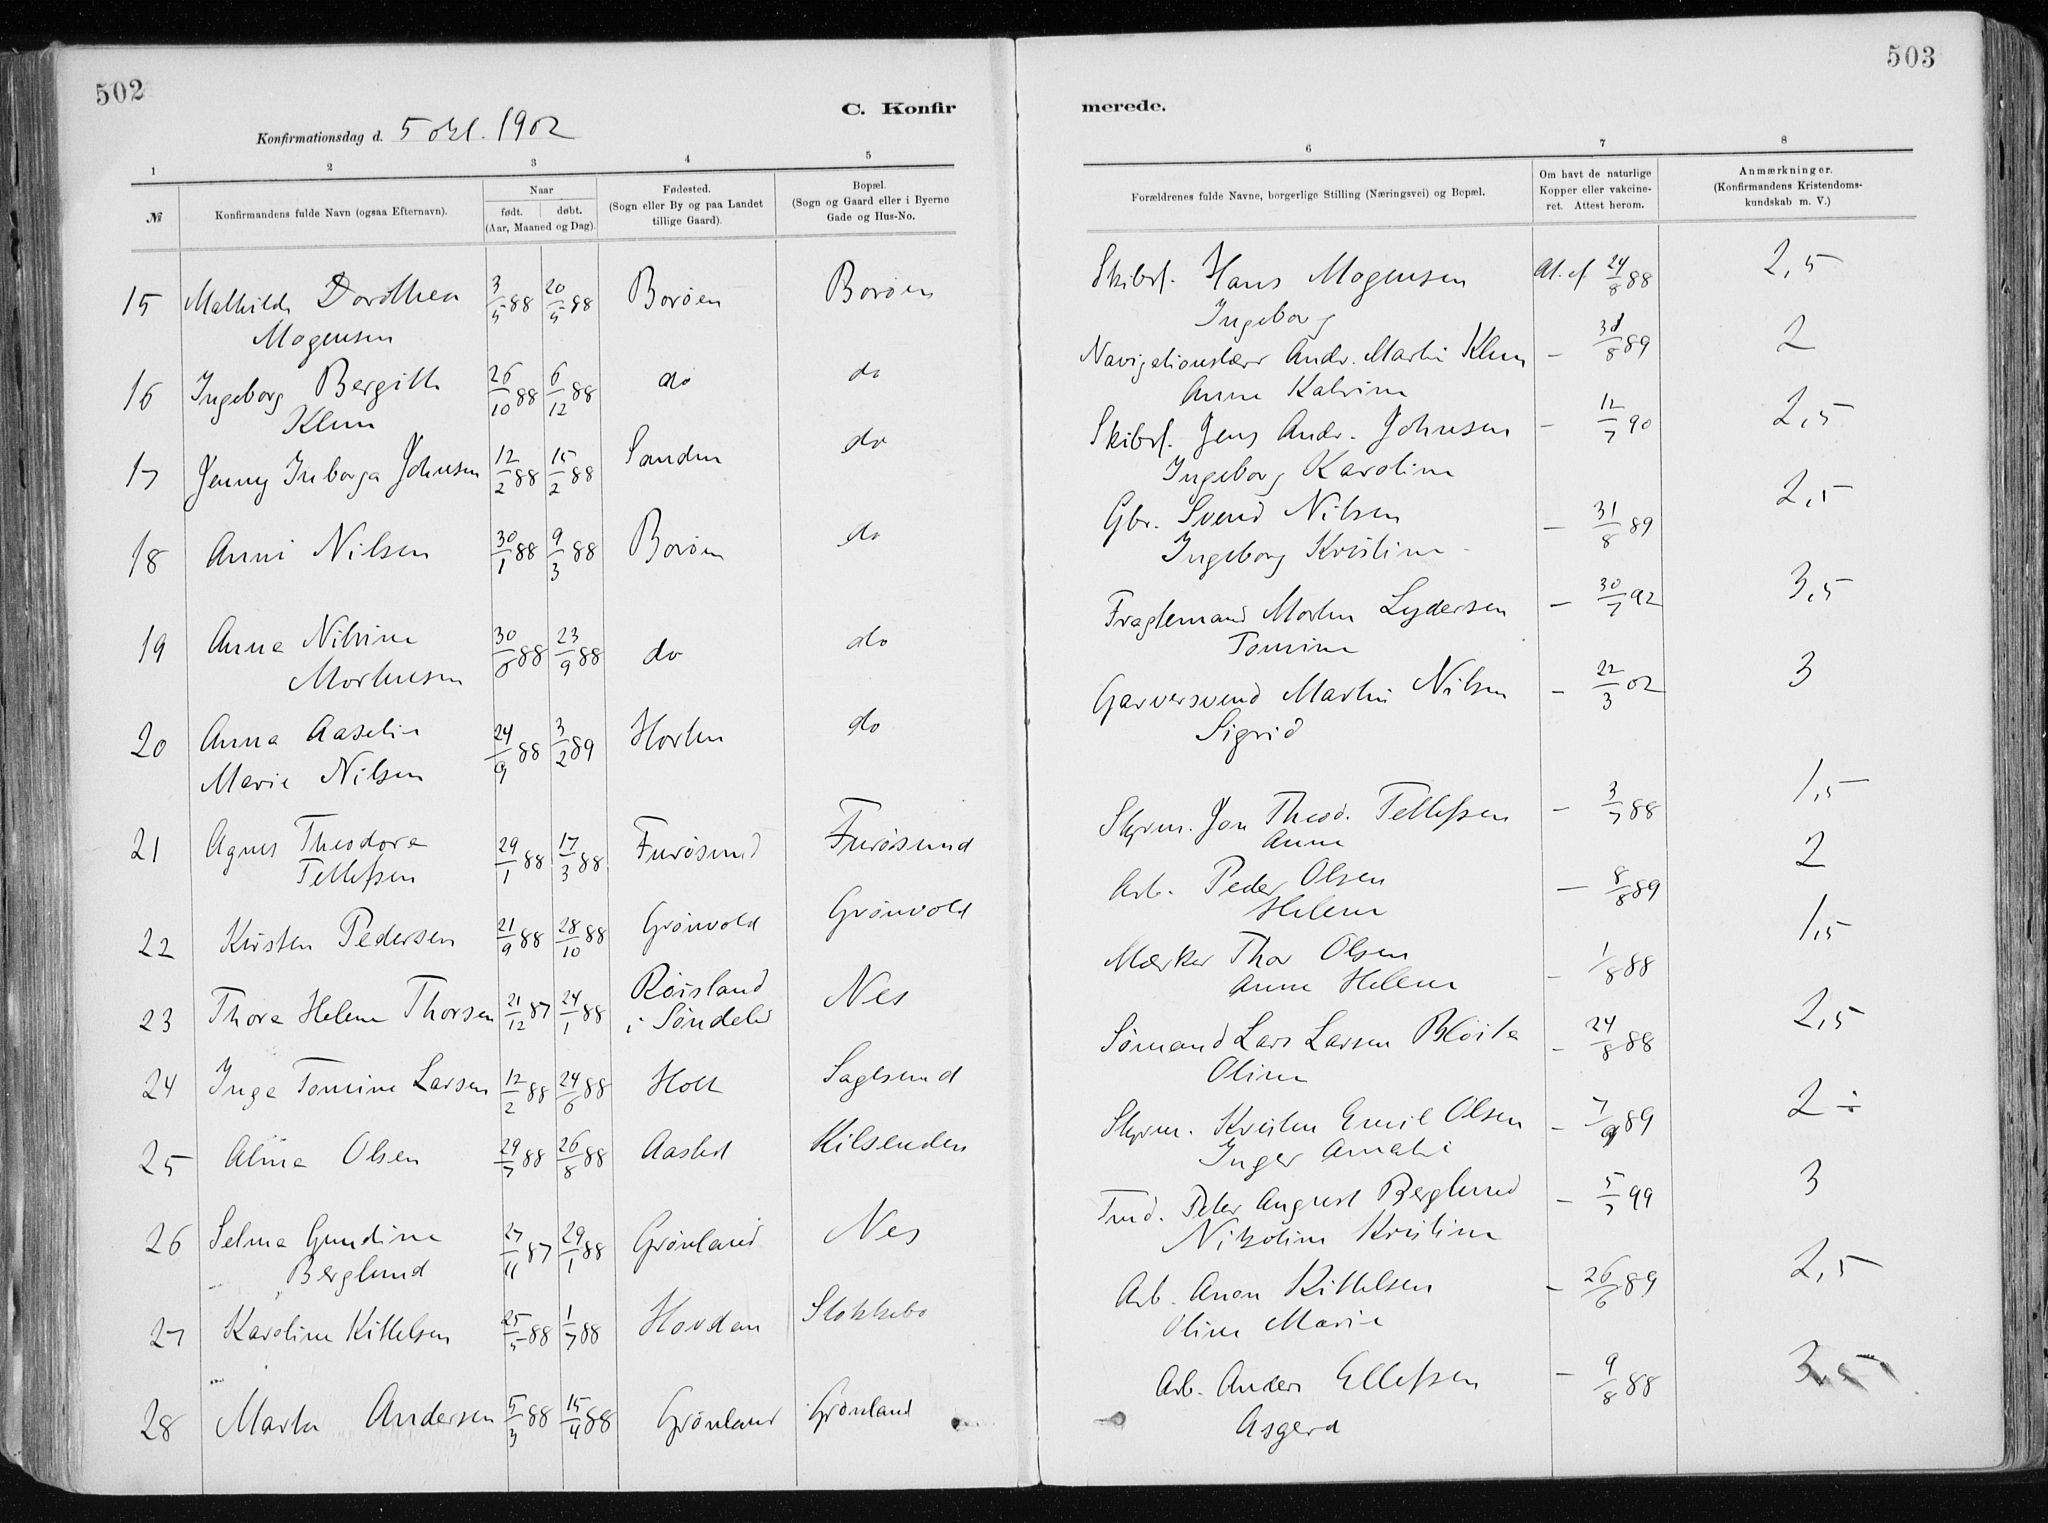 502
503
C. Konfir
merede.
Konfirmationsdag d. 5 okt. 1902
1 2 3 4 5
6 7 8
№
Konfirmandens fulde Navn (ogsaa Efternavn).
Naar
født. døbt.
(Aar, Maaned og Dag).
Fødested.
(Sogn eller By og paa Landet
tillige Gaard).
Bopæl.
(Sogn og Gaard eller i Byerne
Gade og Hus-No.
Forældrenes fulde Navne, borgerlige Stilling (Næringsvei) og Bopæl.
Om havt de naturlige
Kopper eller vakcine-
ret. Attest herom.
Anmærkninger.
(Konfirmandens Kristendoms-
kundskab m. V.)
15 Mathilde Dorothea 3/5 88 20/5 88 Borøen Borøen Skibsf. Hans Mogensen At. ef 24/8 88 2,5
Mogensen Ingeborg
16 Ingeborg Bergitte 26/10 88 6/12 88 do do Navigationslærer Andr. Martin Klem - 31/8 89 2
Klem Anne Katrine
17 Jenny Inborga Johnsen 12/2 88 15/2 88 Sanden do Skibsf. Jens Andr. Johnsen - 12/7 90 2,5
Ingeborg Karoline
18 Anni Nilsen 30/1 88 9/3 88 Borøen do Gbr. Svend Nilsen - 31/8 89 2,5
Ingeborg Kristine
19 Anna Nilsine 30/6 88 23/9 88 do do Fragtemand Morten Lydersen - 30/7 92 3,5
Mortensen Tomine
20 Anna Aaselie 24/9 88 3/2 89 Horten do Garversvend Martin Nilsen - 22/3 02 3
Marie Nilsen Sigrid
21 Agnes Theodora 29/1 88 17/3 88 Furøsund Furøsund Styrm. Jon Theod. Tellefsen - 3/7 88 1,5
Tellefsen Anne
22 Kirsten Pedersen 21/9 88 28/10 88 Grønvold Grønvold Arb. Peder Olsen - 8/8 89 2
Helene
23 Thora Helene Thorsen 21/12 87 24/1 88 Røisland Nes Mærker Thor Olsen - 1/8 88 1,5
i Søndeled Anne Helene
24 Inga Tomine Larsen 12/2 88 24/6 88 Holt Sagesund Sømand Lars Larsen - 24/8 88 2,5
Oline
25 Alma Olsen 29/7 88 26/8 88 Kilsenden Styrm. Kristen Emil Olsen - 7/9 89 2 ÷
Inger Amalie
26 Selma Gundine 27/11 87 29/1 88 Grønland Nes Tmd. Peter August Berglund - 5/7 99 3
Berglund Nikoline Kristine
27 Karoline Kittelsen 25/5 88 1/7 88 Hovdan Stokkebo Arb. Anon Kittelsen - 26/6 89 2,5
Oline Marie
28 Marta Andersen 5/3 88 15/4 88 Grønland Grønland Arb. Anders Ellefsen - 9/8 88 3,5
Asgerd